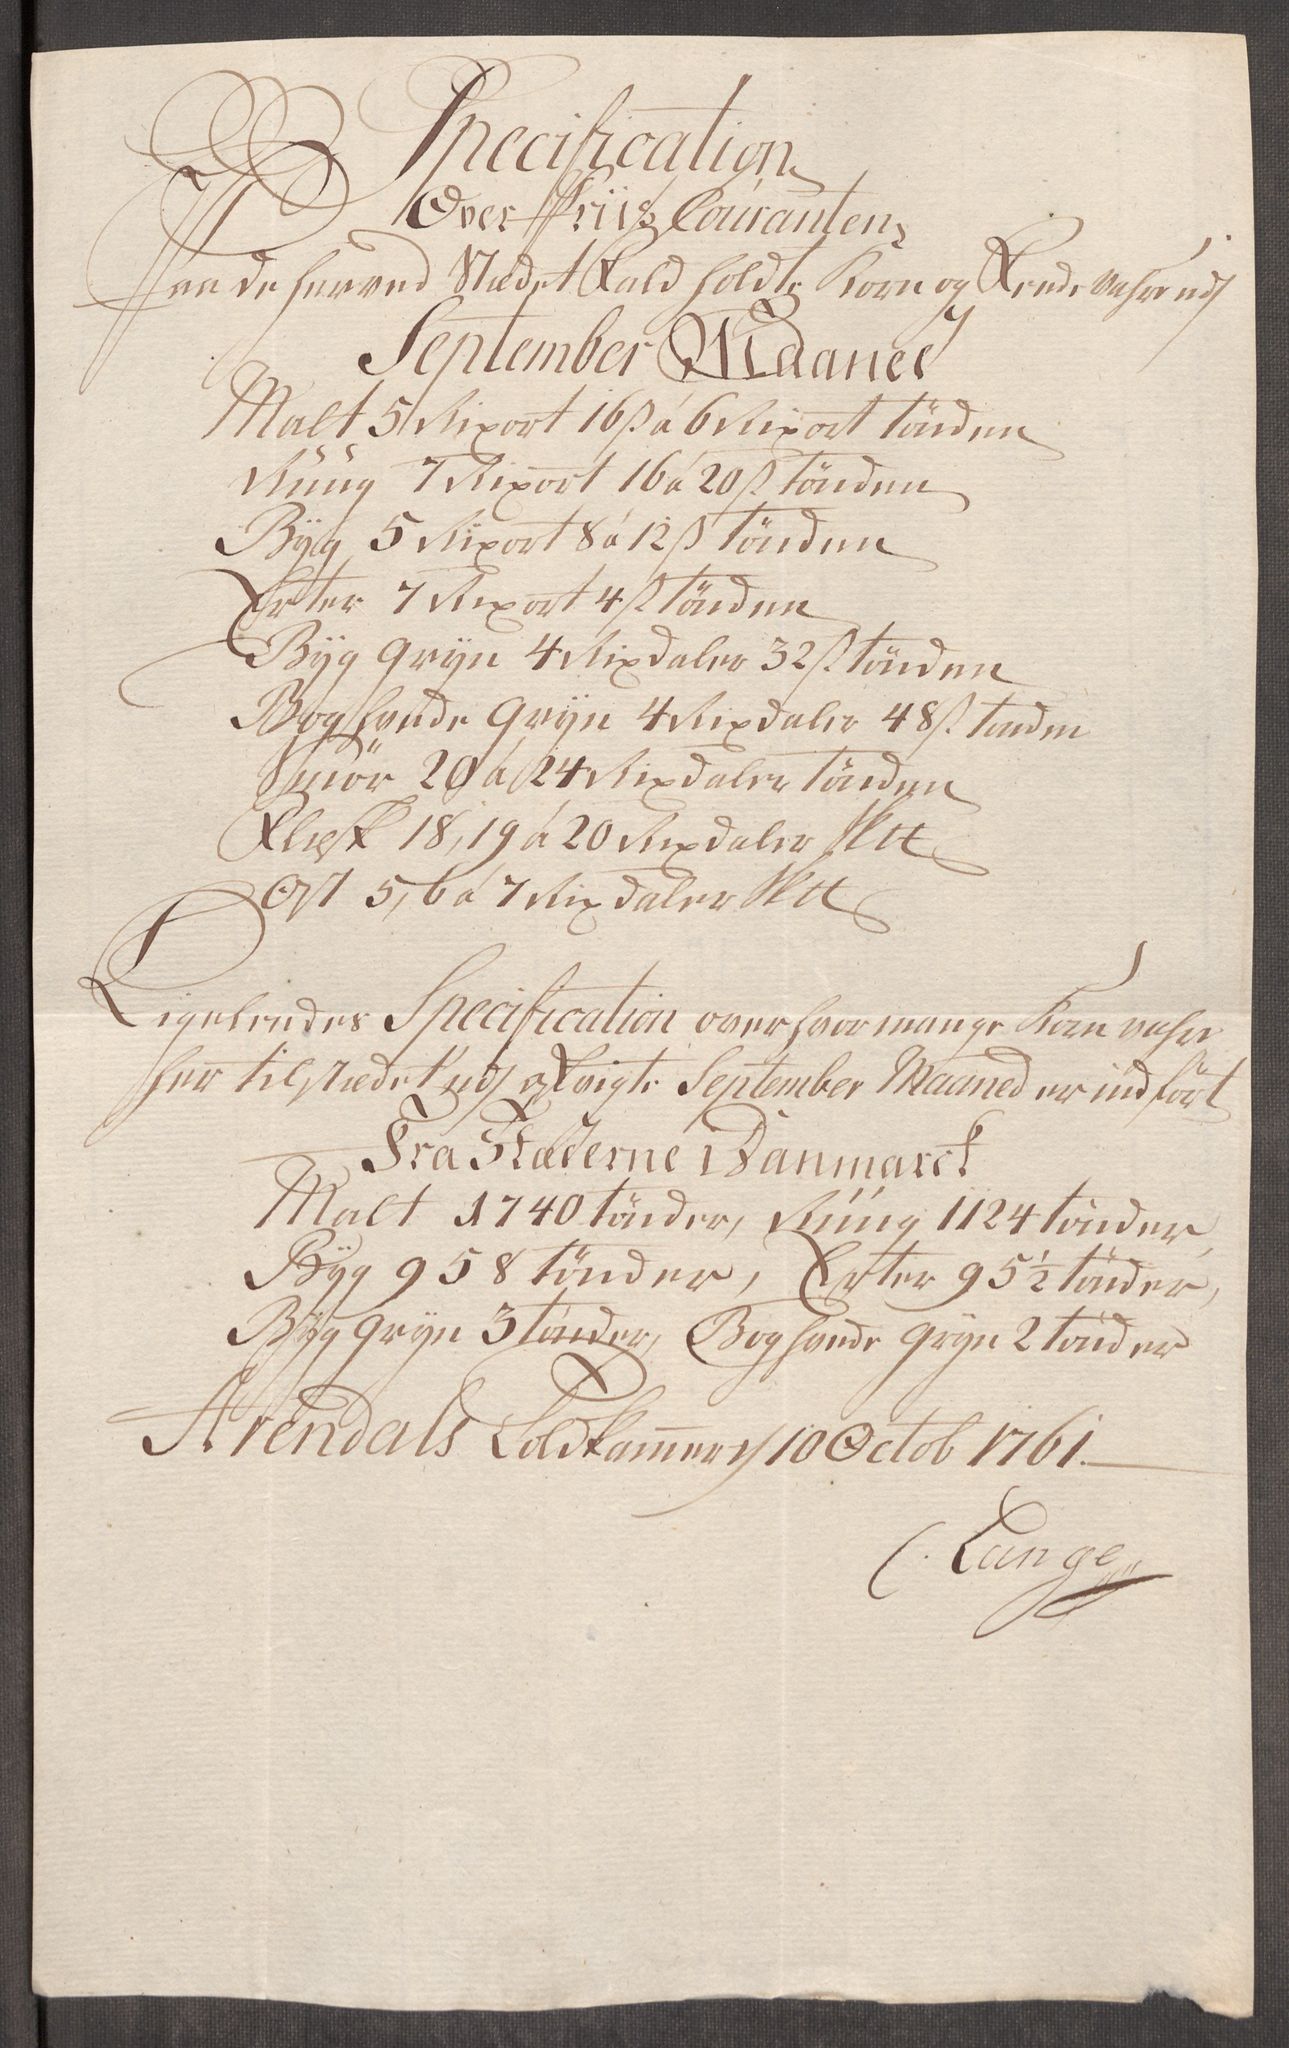 Specification
Over Priis Couranten
Paa de herved Stædet Fald holdte Korn og Fede vahre udj
September Maaned
Malt 5 Rixort 16 ß á 6 Rixort tönden
Rüüg 7 Rixort 16 á 20 ß tönden
Byg 5 Rixort 8 á 12 ß tönden
Erter 7 Rixort 4 ß tönden
Byg Gryn 4 Rixdaler 32 ß tönden
Boghvede Gryn 4 Rixdaler 48 ß tønden
Smör 20 á 24 Rixdaler tönden
Flesk 18, 19 á 20 Rixdaler Sktt
Ost 5, 6 á 7 Rixdaler Sktt
Ligeleedes Specification over hvor mange Korn vahre
her til Stædet udj afvigte September Maaned er indfört
Fra Stæderne i Danmarck
Malt 1740 tönder, Rüüg 1124 tönder,
Byg 958 tönder, Erter 95½ tönder,
Byg Gryn 3 tönder, Boghvede Gryn 2 tönder
Arendals Toldkammer 10 Octob 1761.
C. Lange